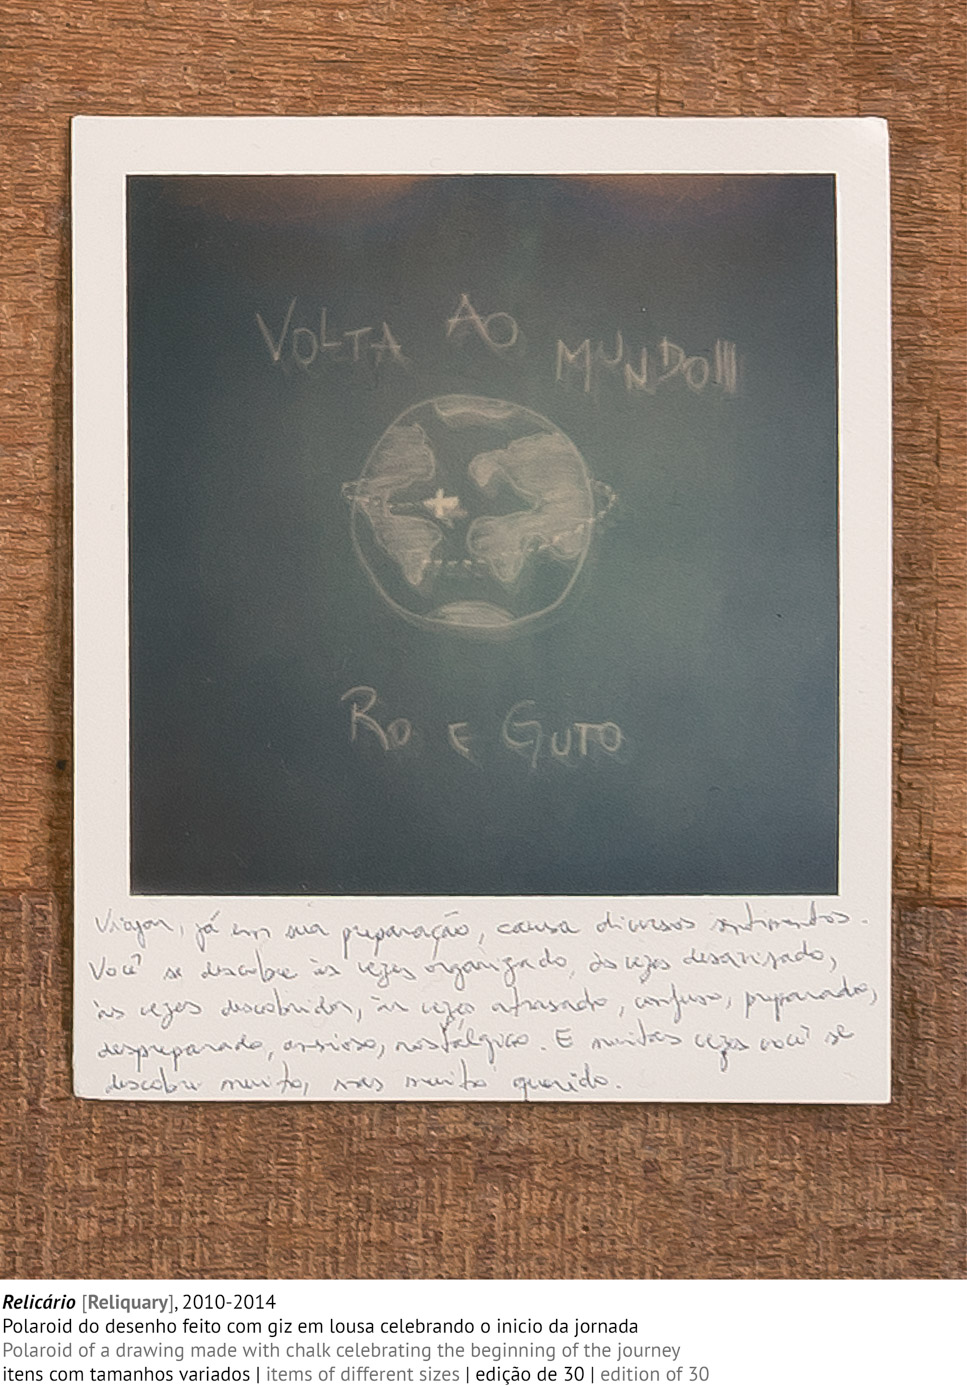 VOLTA AO MUNDO!!!
RO E GUTO
Viajar, já em sua preparação, causa diversos sentimentos.
Você se descobre às vezes organizado, às vezes desavisado,
às vezes descobridor, às vezes atrasado, confuso, preparado,
despreparado, ansioso, nostálgico. E muitas vezes você se
descobre muito, mas muito querido.
Relicário [Reliquary], 2010-2014
Polaroid do desenho feito com giz em lousa celebrando o inicio da jornada
Polaroid of a drawing made with chalk celebrating the beginning of the journey
itens com tamanhos variados | items of different sizes | edição de 30 | edition of 30